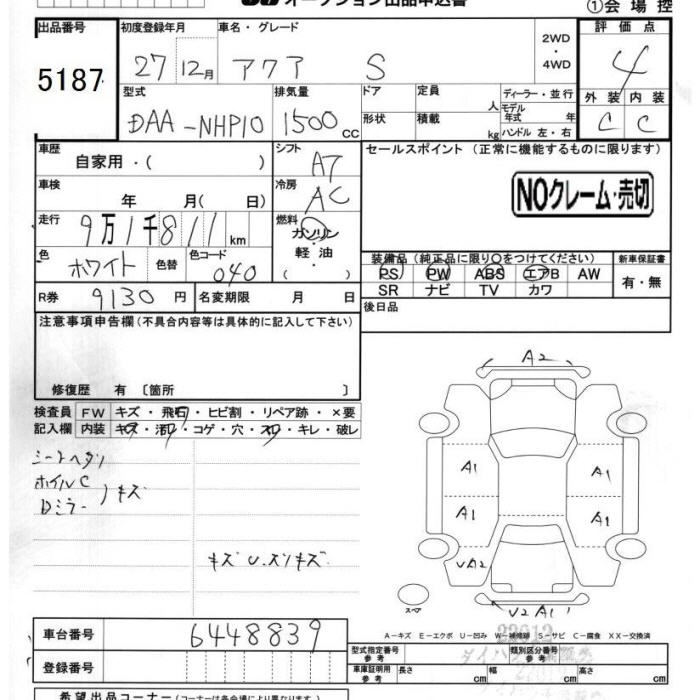 オークション出品申込書
①会場控
出品番号 初度登録年月 車名・グレード 2WD・4WD 評価点
5187 27 12月 アクア S 4
型式 排気量 ドア 定員 人 ディーラー・並行 外装 内装
DAA-NHP10 1500cc 形状 積載 kg モデル年式 年 ハンドル 左・右 C C
車歴 自家用・( ) シフト A7 セールスポイント (正常に機能するものに限ります)
車検 年 月( 日) 冷房 AC NOクレーム・売切
走行 9万1千811km 燃料 ガソリン・軽油・( )
色 ホワイト 色替 色コード 040
装備品 (純正品に限り〇をつけてください) 新車保証書
PS PW ABS エアB AW 有・無
SR ナビ TV カワ
R券 9130円 名変期限 月 日 後日品
注意事項申告欄 (不具合内容等は具体的に記入して下さい)
修復歴 有 〔箇所 〕
検査員 FW キズ・飛石・ヒビ割・リペア跡・×要
記入欄 内装 キズ・汚レ・コゲ・穴・スレ・キレ・破レ
シートヘタリ
ホイルC
Dミラー )キズ
キズ U.スリキズ
A2
A1 A1
A1 A1
UA2 A2
U2 A1
スペア
22012
A-キズ E-エクボ U-凹み W-補修跡 S-サビ C-腐食 XX-交換済
車台番号 6448839
型式指定番号 参考 類別区分番号 参考
登録番号
車庫証明用 参考 長さ cm 幅 cm 高さ cm
希望出品コーナー (コーナーは各会場により異なります)